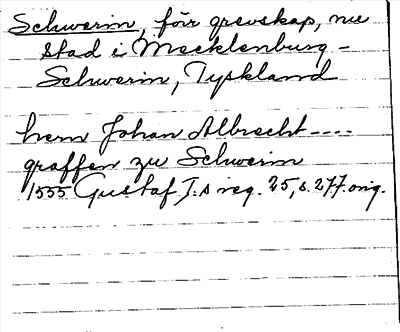 Schwerin, förr grevskap, nu
stad i Mecklenburg-
Schwerin, Tyskland
hern Johan Albrecht ----
graffen zu Schwerin
1555 Gustaf I.s reg. 25, s. 277. orig.